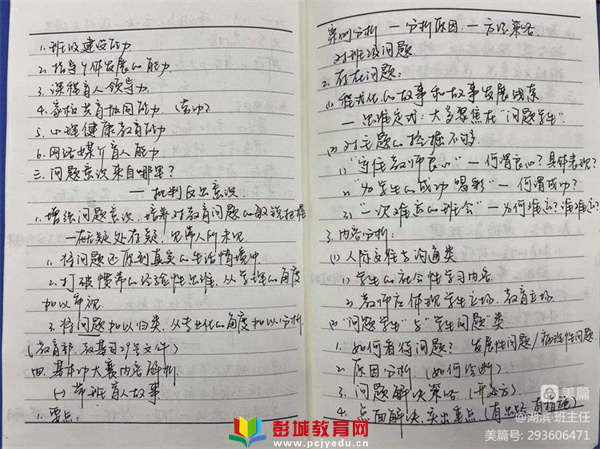 1.班级建设能力
2.指导个体发展的能力
3.课程育人领导力
4.家校共育协同能力
5.心理健康教育能力
6.网络媒介育人能力
三.问题意识来自哪里?
——批判反思意识
1.增强问题意识,培养对教育问题的敏锐把握
—在无疑处存疑,见常人所未见
1.将问题还原到真实的生活情境中
2.打破惯常的经验性思维,从学理的角度
加以审视
3.将问题加以归类,从专业化的角度加以分析
(教育部 教基司29号文件)
四.基本功大赛内容解析
(一)带班育人故事
1.要点:
案例分析—分析原因—方法策略
对班级问题
2.存在问题:
(1)模式化的故事和故事发展线索
—思维定式:大多聚焦在"问题学生"
(2)对主题的挖掘不够
1)"守住教师良心"—何谓良心?具体表现?
2)"为学生的成功喝彩"—何谓成功?
3)"一次难忘的班会"—为何难忘?谁难忘?
3.内容分析:
(1)人际交往与沟通类
1)学生的社会性学习内容
2)教师应体现学生立场、教育立场
(2)"问题学生"与"学生问题"类
1.如何看待问题?发展性问题/病理性问题
2.原因分析(如何诊断)
3.问题解决策略(开处方)
4.点面解决,突出重点(有思路,有措施)
彭城教育网
www.pcjyedu.cn
美篇
@湖滨·班主任
美篇号:293606471